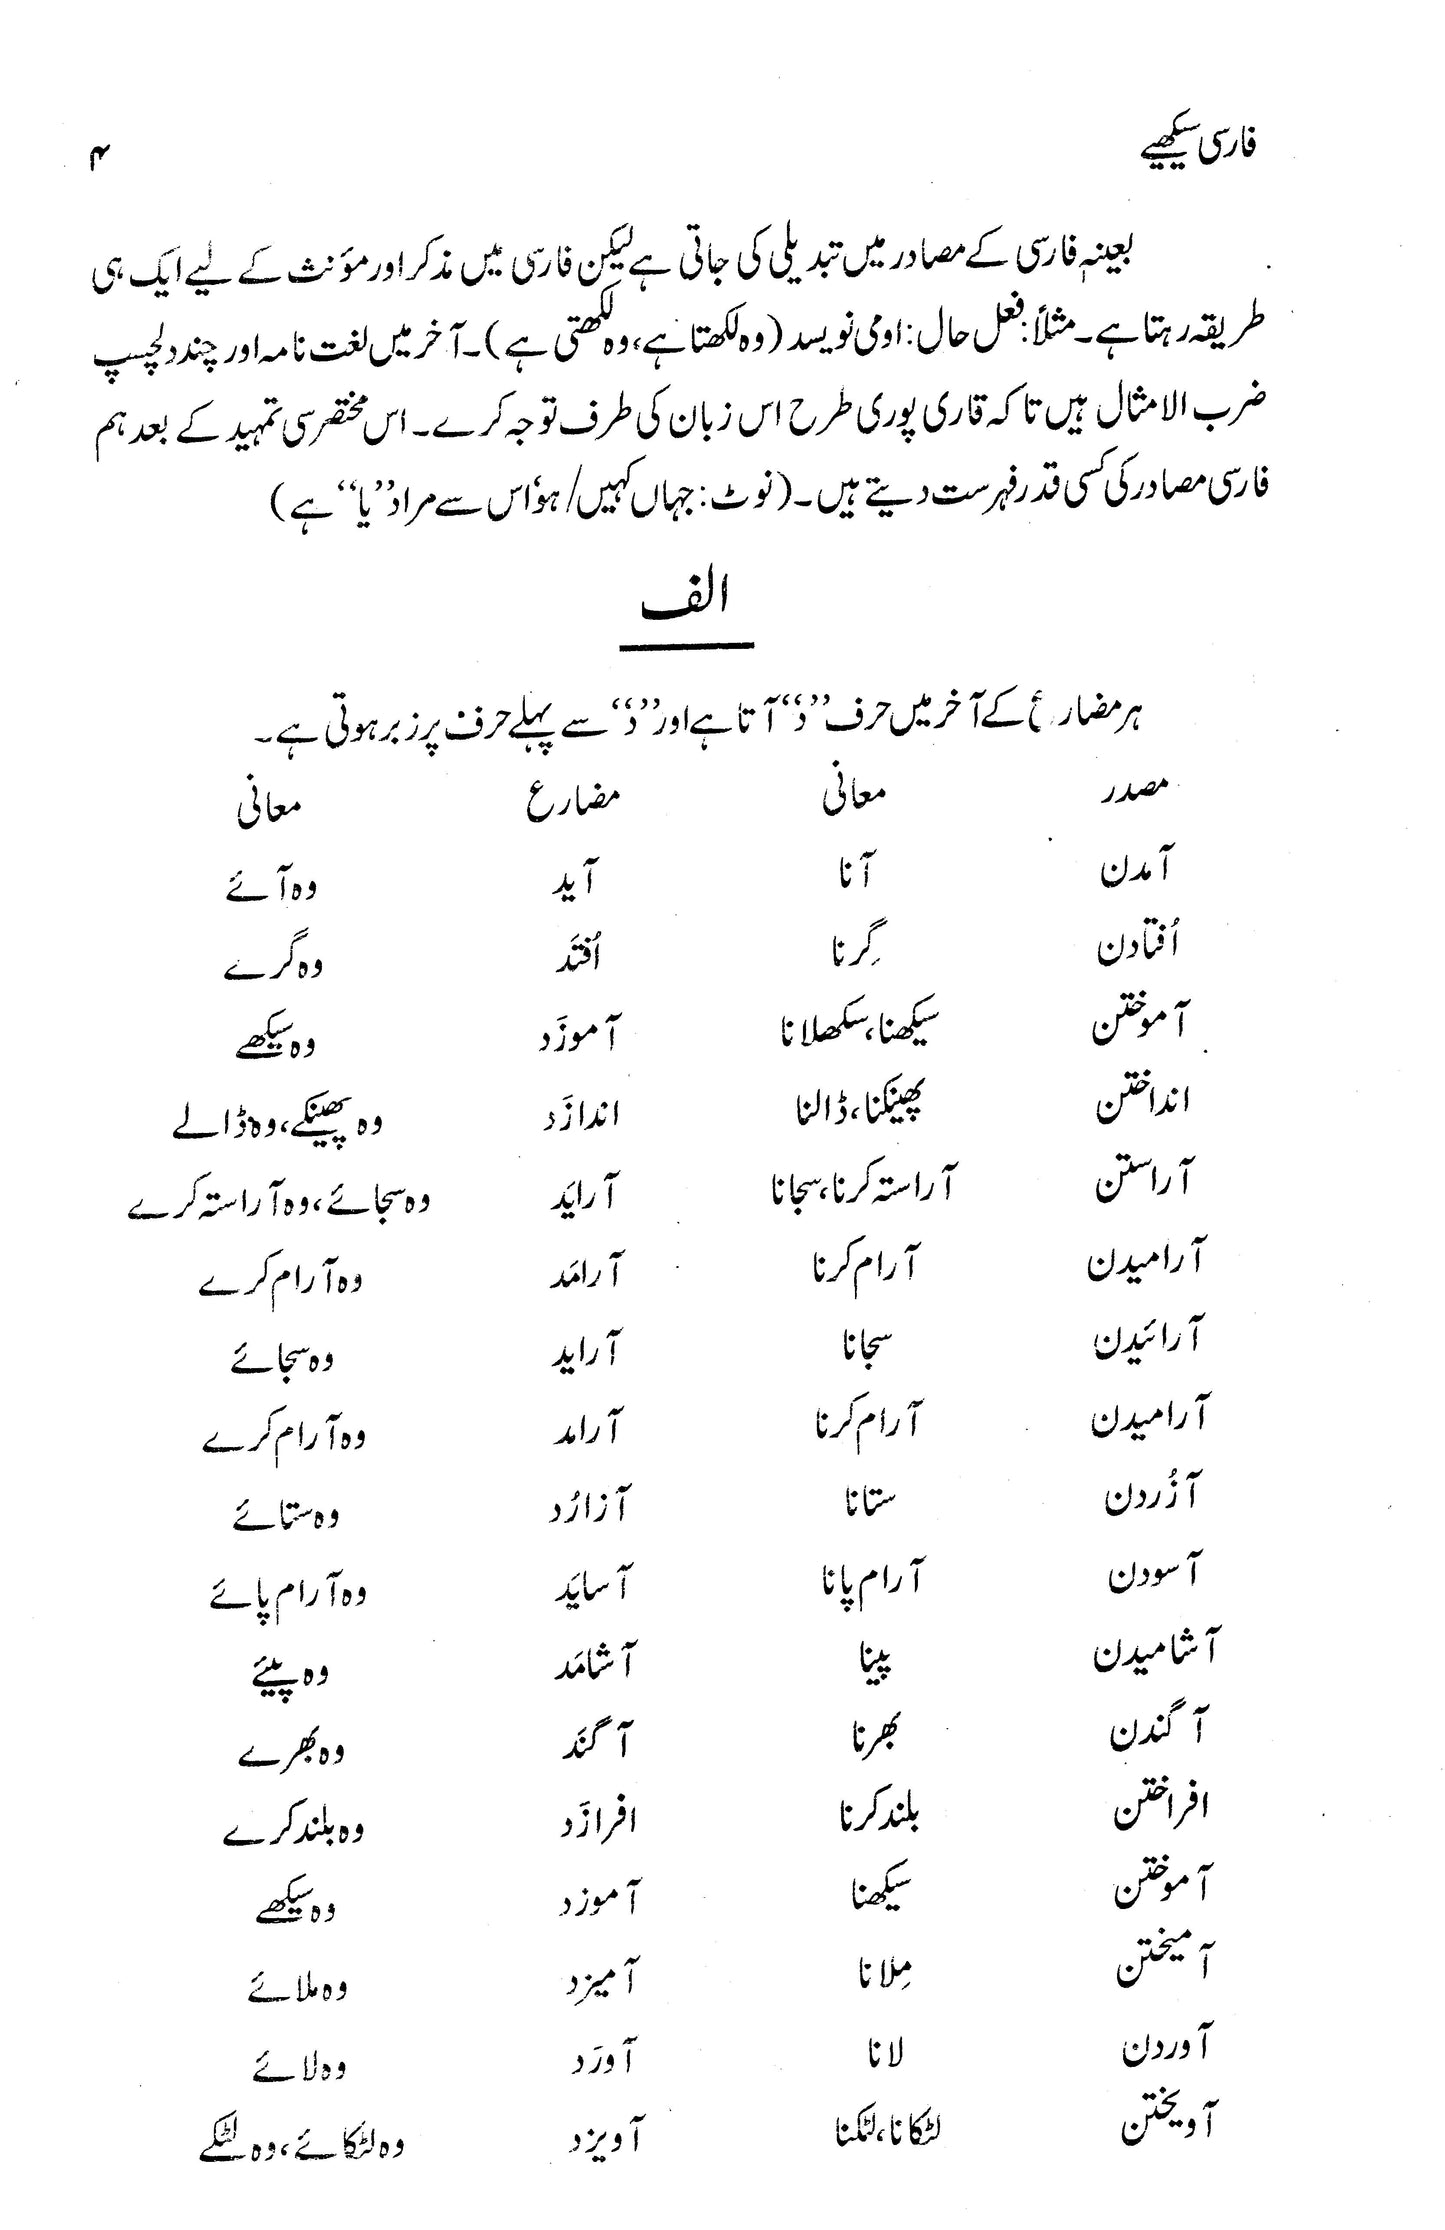 فارسی سیکھیے ۴
بعینہٖ فارسی کے مصادر میں تبدیلی کی جاتی ہے لیکن فارسی میں مذکر اور مؤنث کے لیے ایک ہی
طریقہ رہتا ہے۔ مثلاً: فعل حال: اومی نویسد (وہ لکھتا ہے، وہ لکھتی ہے)۔ آخر میں لغت نامہ اور چند دلچسپ
ضرب الامثال ہیں تاکہ قاری پوری طرح اس زبان کی طرف توجہ کرے۔ اس مختصر سی تمہید کے بعد ہم
فارسی مصادر کی کسی قدر فہرست دیتے ہیں۔ (نوٹ: جہاں کہیں / ہو اُس سے مراد ”یا“ ہے)
الف
ہر مضارع کے آخر میں حرف ”د“ آتا ہے اور ”د“ سے پہلے حرف پر زبر ہوتی ہے۔
مصدر معانی مضارع معانی
آمدن آنا آید وہ آئے
اُفتادن گِرنا اُفتَد وہ گرے
آموختن سیکھنا، سکھلانا آموزَد وہ سیکھے
انداختن پھینکنا، ڈالنا اندازَد وہ پھینکے، وہ ڈالے
آراستن آراستہ کرنا، سجانا آرایَد وہ سجائے، وہ آراستہ کرے
آرامیدن آرام کرنا آرامَد وہ آرام کرے
آرائیدن سجانا آراید وہ سجائے
آرامیدن آرام کرنا آرامد وہ آرام کرے
آزُردن ستانا آزارُد وہ ستائے
آسودن آرام پانا آسایَد وہ آرام پائے
آشامیدن پینا آشامَد وہ پیئے
آگندن بھرنا آگنَد وہ بھرے
افراختن بلند کرنا افرازَد وہ بلند کرے
آموختن سیکھنا آموزد وہ سیکھے
آمیختن مِلانا آمیزد وہ ملائے
آوردن لانا آورَد وہ لائے
آویختن لٹکانا، لٹکنا آویزد وہ لٹکائے، وہ لٹکے